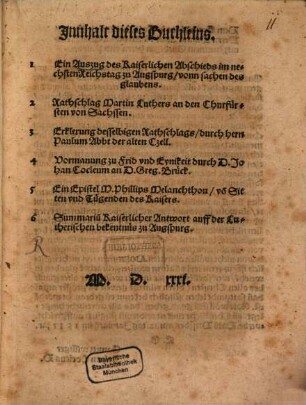 ii
Innhalt dieses Buchleins.
1 Ein Auszug des Kaiserlichen Abschieds im ne-
chsten Reichstag zu Augspurg/vonn sachen des
glaubens.
2 Rathschlag Martin Luthers an den Churfür-
sten von Sachssen.
3 Erklerung desselbigen Rathschlags/durch hern
Paulum Abbt der alten Czell.
4 Vormanung zu Frid vnd Eynikeit durch D. Jo-
han Cocleum an D. Greg. Brück.
5 Ein Epistel M. Phillips Melanchthon/ vō Sit
ten vnd Tügenden des Kaisers.
6 Summariū Kaiserlicher Antwort auff der Lu-
therischen bekentnis zu Augspurg.
M. D. xxxi.
Bayerische
Staatsbibliothek
München